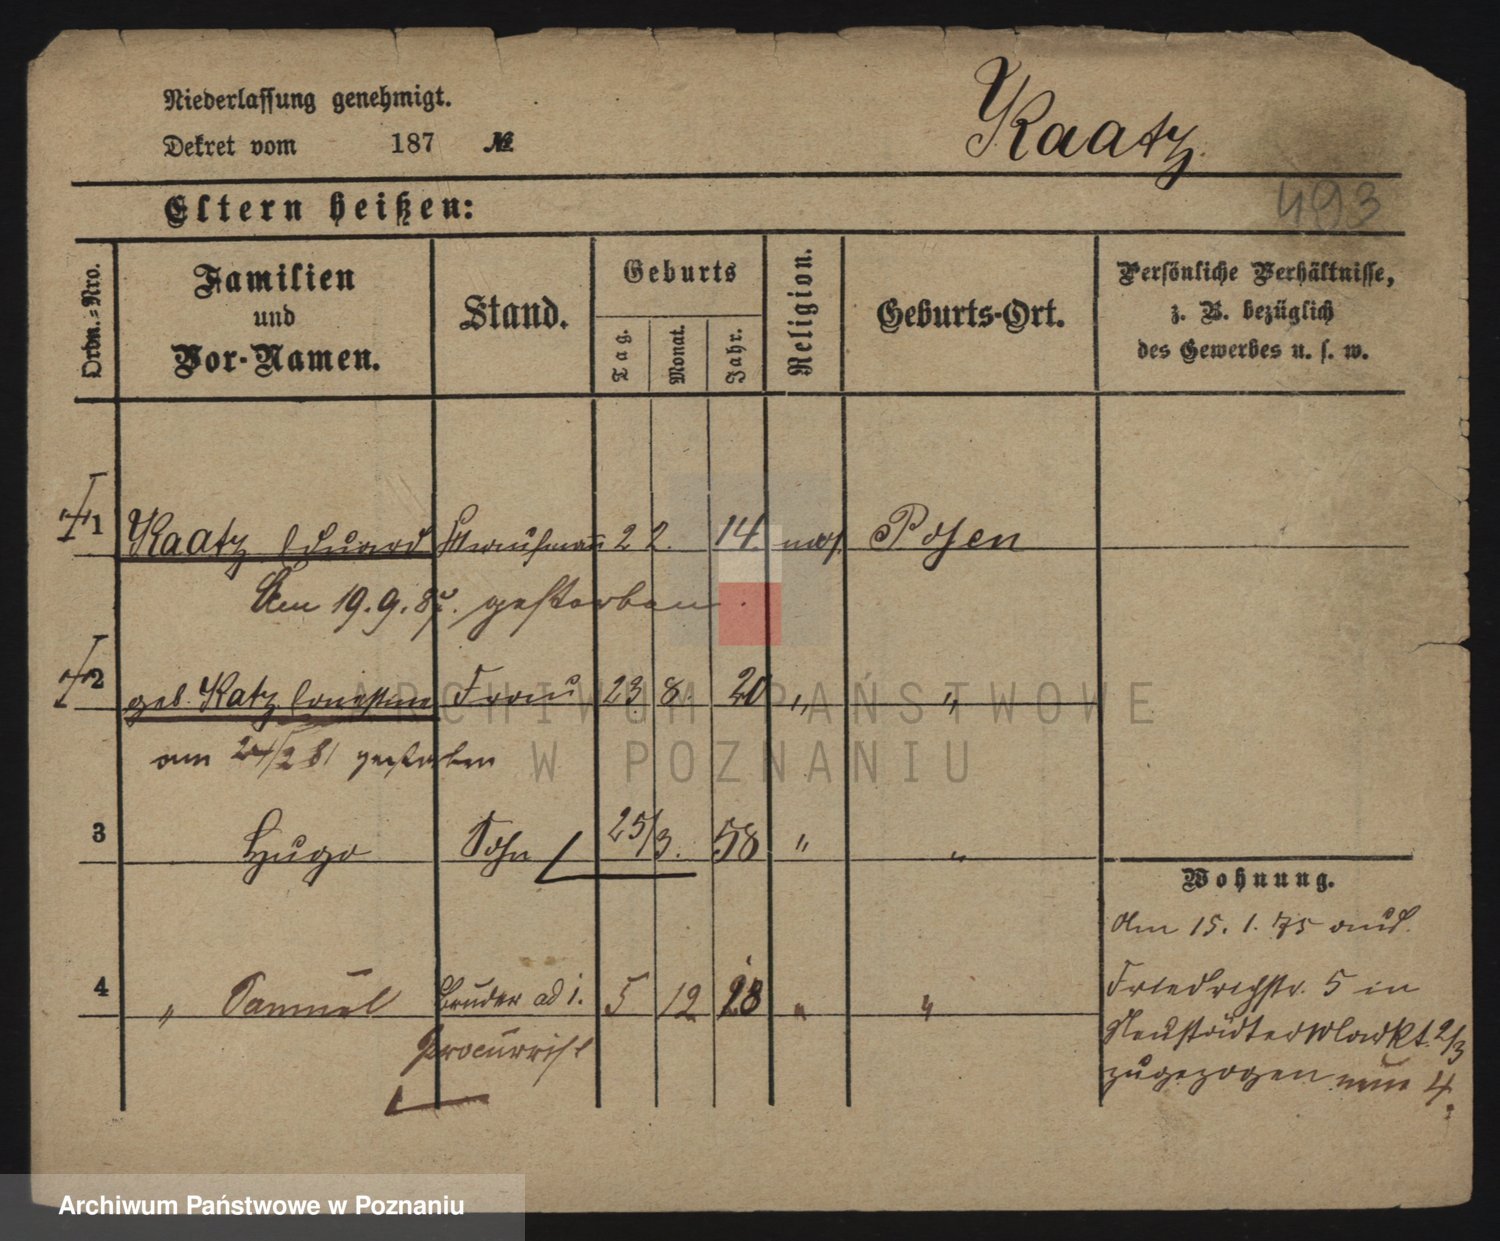 Niederlassung genehmigt.
Dekret vom 187 №
Kaatz.
493
Eltern heißen:
Ordn.-Nro.
Familien
und
Vor-Namen.
Stand.
Geburts
Tag.
Monat.
Jahr.
Religion.
Geburts-Ort.
Persönliche Verhältnisse,
z. B. bezüglich
des Gewerbes u. s. w.
1 Kaatz Eduard Kaufmann 2 2. 14. mos. Posen
Am 19.9. gestorben.
2 geb. Katz Frau 23 8. 20 " "
am 24/2 81 gestorben
3 Hugo Sohn 25/3. 58 " "
Wohnung.
Am 15. 1. 75 aus
4 " Samuel Bruder ad 1. 5 12 28 " "
Friedrichstr. 5 in
Procurist
Neustädter Markt 2/3
zugezogen nun 4.
ARCHIWUM PAŃSTWOWE
W POZNANIU
Archiwum Państwowe w Poznaniu